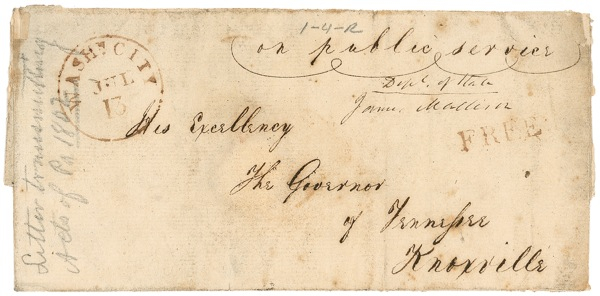 1-4-R
on public service
WASHN. CITY
JUL
13
Dept. of State
James Madison
FREE
His Excellency
The Governor
of Tennessee
Knoxville
Letter transmitting
Acts of